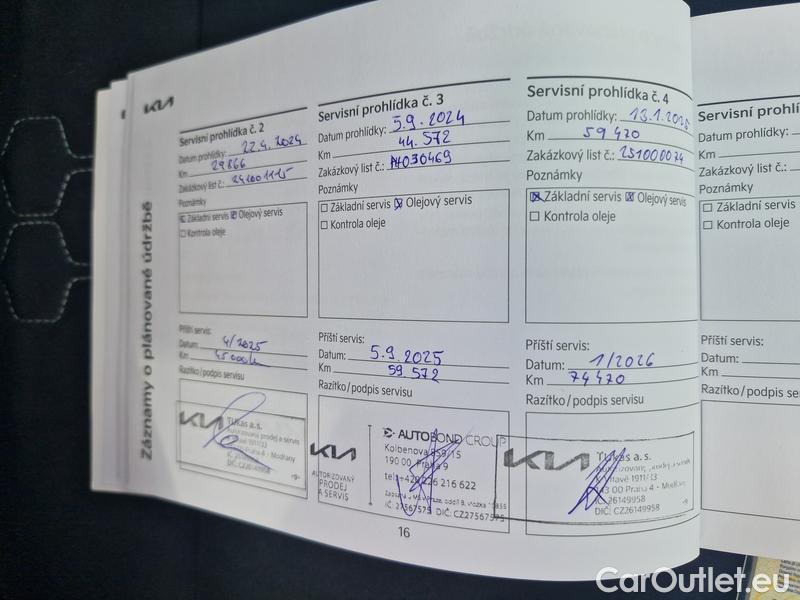 KIA
Záznamy o plánované údržbě
Servisní prohlídka č. 2
Datum prohlídky: 22.4.2024
Km 29866
Zakázkový list č.: 241001125
Poznámky
Základní servis Olejový servis
Kontrola oleje
Příští servis:
Datum: 4/2025
Km 45000k
Razítko/podpis servisu
KIA Tukas a.s.
Autorizovaný prodej a servis
Praha 4 - Modřany
DIČ: CZ26149958
Servisní prohlídka č. 3
Datum prohlídky: 5.9.2024
Km 44.572
Zakázkový list č.: A1030469
Poznámky
Základní servis Olejový servis
Kontrola oleje
Příští servis:
Datum: 5.9.2025
Km 59572
Razítko/podpis servisu
KIA
AUTORIZOVANÝ
PRODEJ
A SERVIS
AUTOBOND GROUP
Kolbenova 859/15
190 00 Praha 9
tel: +420 226 216 622
IČ: 27567575 DIČ: CZ27567575
Servisní prohlídka č. 4
Datum prohlídky: 13.1.2025
Km 59470
Zakázkový list č.: 251000074
Poznámky
Základní servis Olejový servis
Kontrola oleje
Příští servis:
Datum: 1/2026
Km 74470
Razítko/podpis servisu
KIA Tukas a.s.
143 00 Praha 4 - Modřany
26149958
DIČ: CZ26149958
Servisní prohlí
Datum prohlídky:
Km
Zakázkový list č.:
Poznámky
Základní se
Kontrola o
Příští servis:
Datum:
Km
Razítko/podpis se
16
CarOutlet.eu